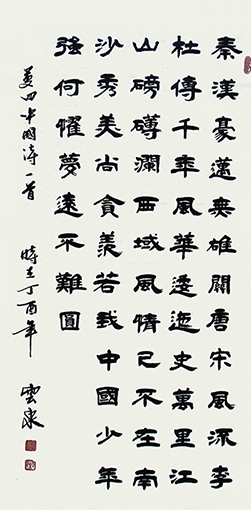 秦漢豪邁英雄關唐宋風流李
杜傳千年風華逶迤史萬里江
山磅礴瀾西域風情已不在南
沙秀美尚貪羨若我中國少年
強何懼夢遠不難圓
夢回中國詩一首 時在丁酉年 雲泉